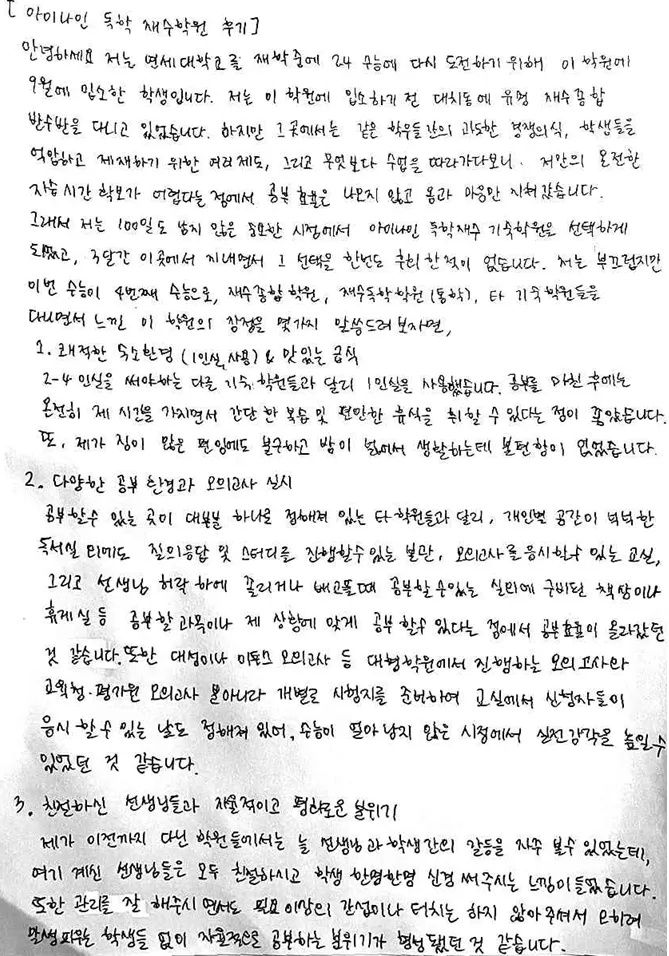 [ 아이나인 독학 재수학원 후기 ]
안녕하세요 저는 연세대학교를 재학중에 24 수능에 다시 도전하기 위해 이 학원에
9월에 입소한 학생입니다. 저는 이 학원에 입소하기 전 대치동에 유명 재수종합
반수반을 다니고 있었습니다. 하지만 그곳에서는 같은 학우들간의 과도한 경쟁의식, 학생들을
억압하고 제재하기 위한 여러제도, 그리고 무엇보다 수업을 따라가다보니 저만의 온전한
자습시간 확보가 어렵다는 점에서 공부 효율은 나오지 않고 몸과 마음만 지쳐갔습니다.
그래서 저는 100일도 남지 않은 중요한 시점에서 아이나인 독학재수 기숙학원을 선택하게
되었고, 3달간 이곳에서 지내면서 그 선택을 한번도 후회한적이 없습니다. 저는 부끄럽지만
이번 수능이 4번째 수능으로, 재수종합학원, 재수독학학원(통학), 타 기숙학원들을
다니면서 느낀 이 학원의 장점을 몇가지 말씀드려보자면,
1. 쾌적한 숙소환경 (1인실 사용) & 맛있는 급식
2-4 인실을 써야하는 다른 기숙 학원들과 달리 1인실을 사용했습니다. 공부를 마친 후에는
온전히 제 시간을 가지면서 간단한 복습 및 편안한 휴식을 취할 수 있다는 점이 좋았습니다.
또, 제가 짐이 많은 편임에도 불구하고 방이 넓어서 생활하는데 불편함이 없었습니다.
2. 다양한 공부 환경과 모의고사 실시
공부할수 있는 곳이 대부분 하나로 정해져 있는 타학원들과 달리, 개인별 공간이 넉넉한
독서실 외에도 질의응답 및 스터디를 진행할수있는 불만, 모의고사를 응시할수 있는 교실,
그리고 선생님 허락 하에 졸리거나 배고플때 공부할수있는 실외에 구비된 책상이나
휴게실 등 공부할 과목이나 제 상황에 맞게 공부 할수 있다는 점에서 공부효율이 올라갔던
것 같습니다. 또한 대성이나 이투스 모의고사 등 대형학원에서 진행하는 모의고사와
교육청·평가원 모의고사 뿐아니라 개별로 시험지를 준비하여 교실에서 신청자들이
응시 할수 있는 날도 정해져 있어, 수능이 얼마남지 않은 시점에서 실전감각을 높일수
있었던 것 같습니다.
3. 친절하신 선생님들과 자율적이고 평화로운 분위기
제가 이전까지 다닌 학원들에서는 늘 선생님과 학생간의 갈등을 자주 볼수 있었는데,
여기 계신 선생님들은 모두 친절하시고 학생 한명한명 신경 써주시는 느낌이 들었습니다.
또한 관리를 잘 해주시면서도 필요이상의 간섭이나 터치는 하지 않아주셔서 오히려
말썽피우는 학생들 없이 자율적으로 공부하는 분위기가 형성됐던 것 같습니다.